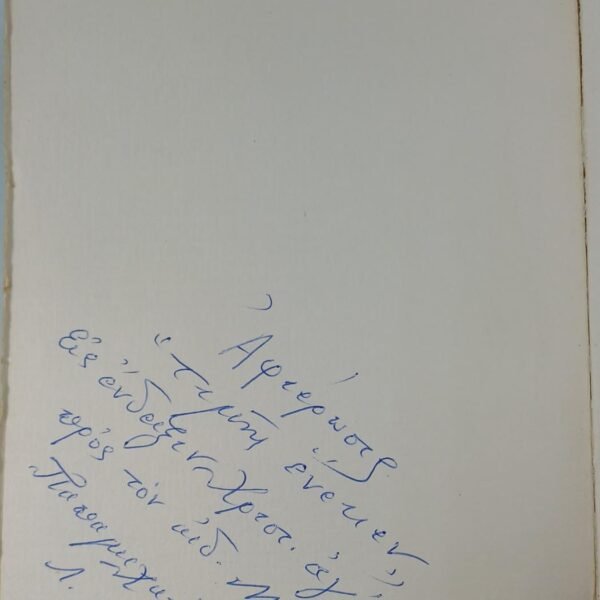 Ἀφιέρωσις
"τιμῆς ἕνεκεν"
Εἰς ἔνδειξιν Χριστ. ἀγ
πρὸς τὸν αἰδ.
Παπαμιχα
Λ.